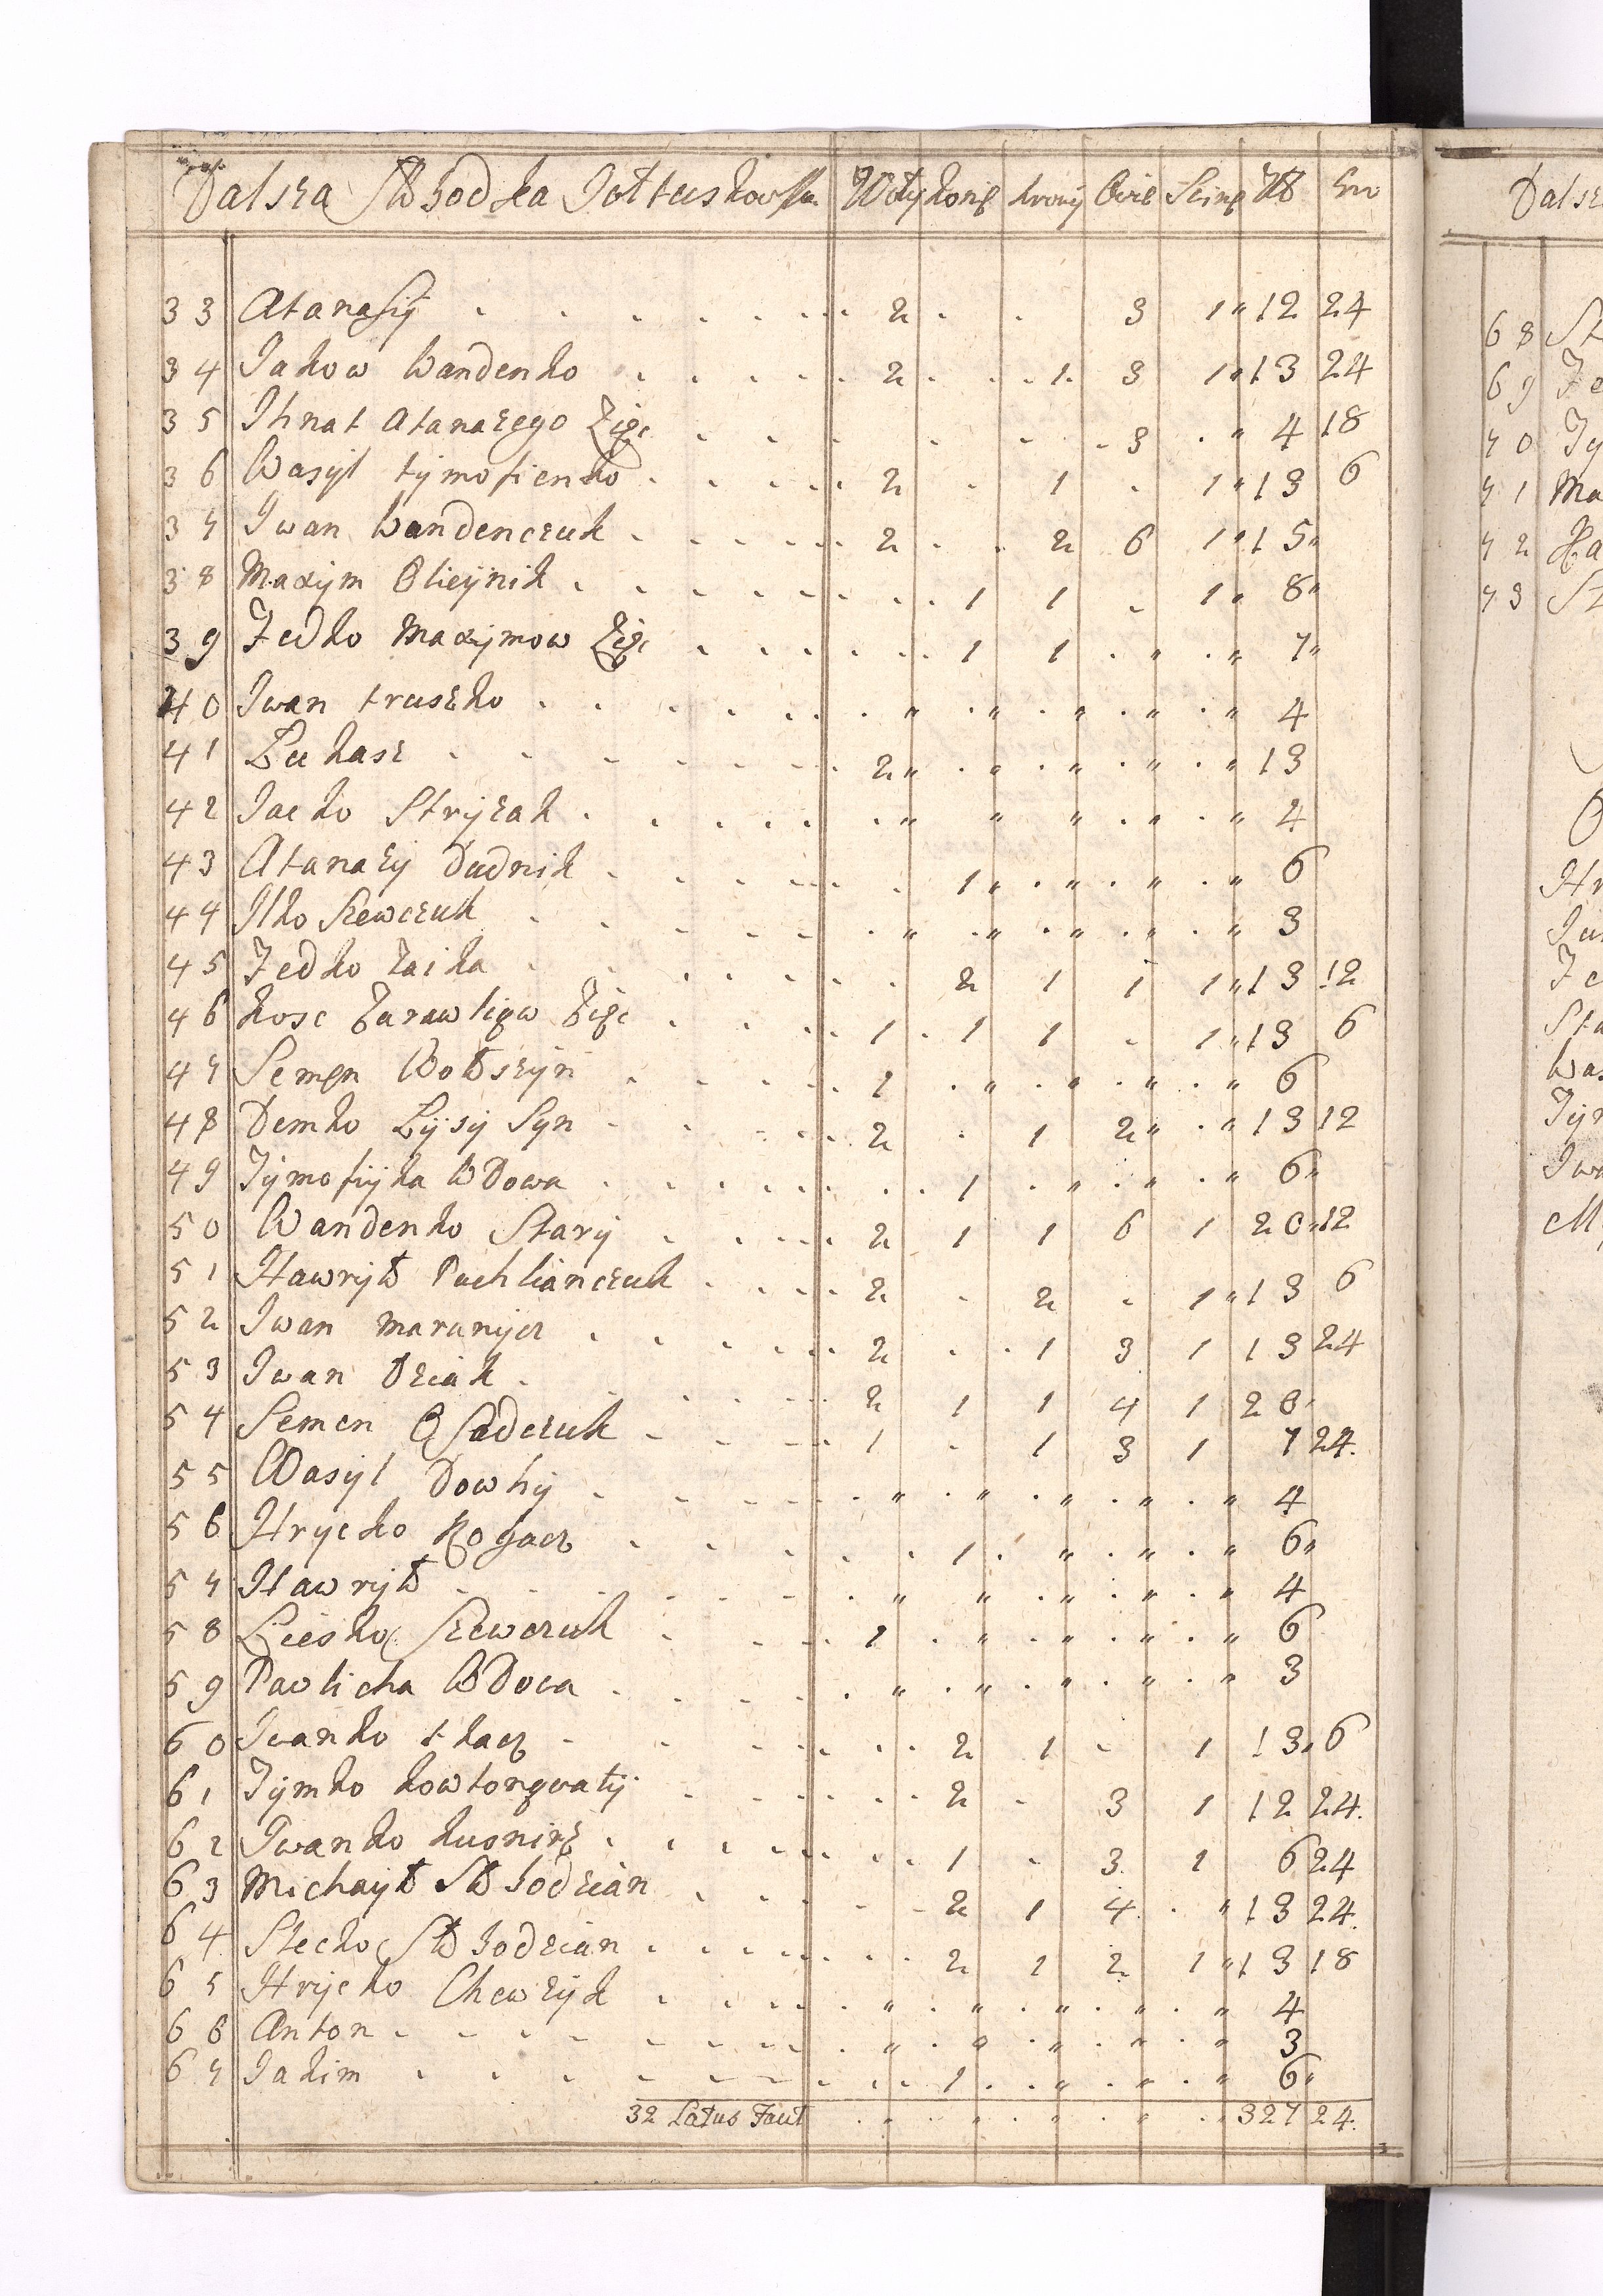 Dalsza Słobodka Jołtuszkowska Woły konie krowy Owie Swinie Zł Gr
33 Atanasij 2 3 1 " 12 24
34 Jakow Wandenko 2 1 3 1 " 13 24
35 Ihnat Atanazego Zięc 3 " 4 18
36 Wasyl tymofienko 2 1 1 " 13 6
37 Iwan Wandenczuk 2 2 6 1 " 15 "
38 Maxym Olieynik 1 1 1 " 8 "
39 Fedko Maxymow Zięc 1 1 " " 7 "
40 Iwan truszko " " " " " 4
41 Łukasz 2 " " " " " 13
42 Jacko Stryzak " " " " " 4
43 Atanazy Dudnik 1 " " " " 6
44 Ilko Szewczuk " " " " " 3
45 Fedko Zaika 2 1 1 1 " 13 12
46 kosc Zurawliow Zięc 1 1 1 1 " 13 6
47 Semen Wołszyn 1 " " " " 6
48 Demko Łysy Syn 2 1 2 " " 13 12
49 Tymofiyka Wdowa 1 " " " 6 "
50 Wandenko Stary 2 1 1 6 1 20 " 12
51 Hawryło Puchlianczuk 2 2 1 " 13 6
52 Iwan marunycz 2 1 3 1 13 24
53 Iwan Dziak 2 1 1 4 1 20 "
54 Semen Osadczuk 1 1 3 1 7 24.
55 Wasyl Dowhy " " " " " 4
56 Hrycko Rohacz 1 " " " 6 "
57 Hawryło " " " " " 4
58 Liesko Szewczuk 1 " " " " 6
59 Pavlicha Wdowa " " " " " 3
60 Iwanko tkacz 2 1 1 13 " 6
61 Tymko kowtonowaty 2 3 1 12 24.
62 Iwanko kusnirz 1 3. 1 6 24
63 Michayło Słobodzian 2 1 4. " 13 24.
64 Stecko Słobodzian 2 1 2 1 " 13 18
65 Hrycko Chewzyk " " " " " 4
66 Anton " " " " " 3
67 Jakim 1 " " " 6 "
32 Latus Facit " " " " " 327 24.
Dalsz
68 St
69 Fe
70 Ty
71 Ma
72 Ha
73 St
Hr
Fe
Sta
Was
Tym
Iwa